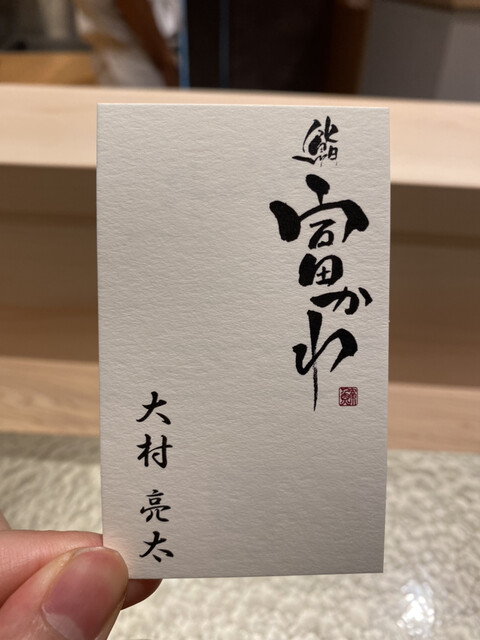 鮨
富かわ
大村 亮太